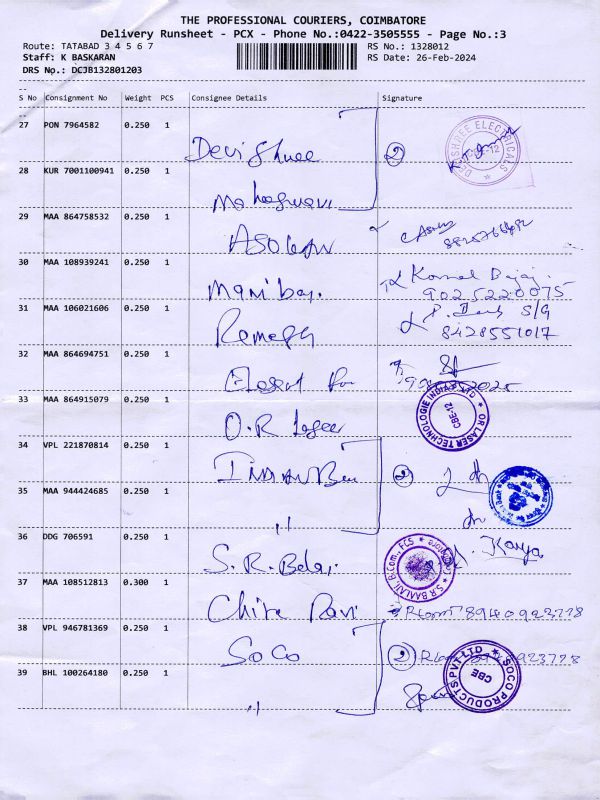 THE PROFESSIONAL COURIERS, COIMBATORE
Delivery Runsheet - PCX - Phone No.:0422-3505555 - Page No.:3
Route: TATABAD 3 4 5 6 7 RS No.: 1328012
Staff: K BASKARAN RS Date: 26-Feb-2024
DRS No.: DCJB132801203
S No Consignment No Weight PCS Consignee Details Signature
27 PON 7964582 0.250 1 Devi Shree 2
DEVISHREE ELECTRICALS
28 KUR 7001100941 0.250 1 Maheswari
29 MAA 864758532 0.250 1 Asokan
30 MAA 108939241 0.250 1 Mani baj. Komal Bajaj.
9025220075
31 MAA 106021606 0.250 1 Ramesh S/G
8428551017
32 MAA 864694751 0.250 1
33 MAA 864915079 0.250 1 O.R laser
OR LASER TECHNOLOGIE INDIA P LTD
CBE-12
34 VPL 221870814 0.250 1 2
35 MAA 944424685 0.250 1 "
36 DDG 706591 0.250 1 S.R. Balaji
S.R BAALAJI, B.Com., FCS
37 MAA 108512813 0.300 1 Ravi 8940923778
38 VPL 946781369 0.250 1 SoCo 2
39 BHL 100264180 0.250 1 "
SOCO PRODUCTS PVT LTD
CBE